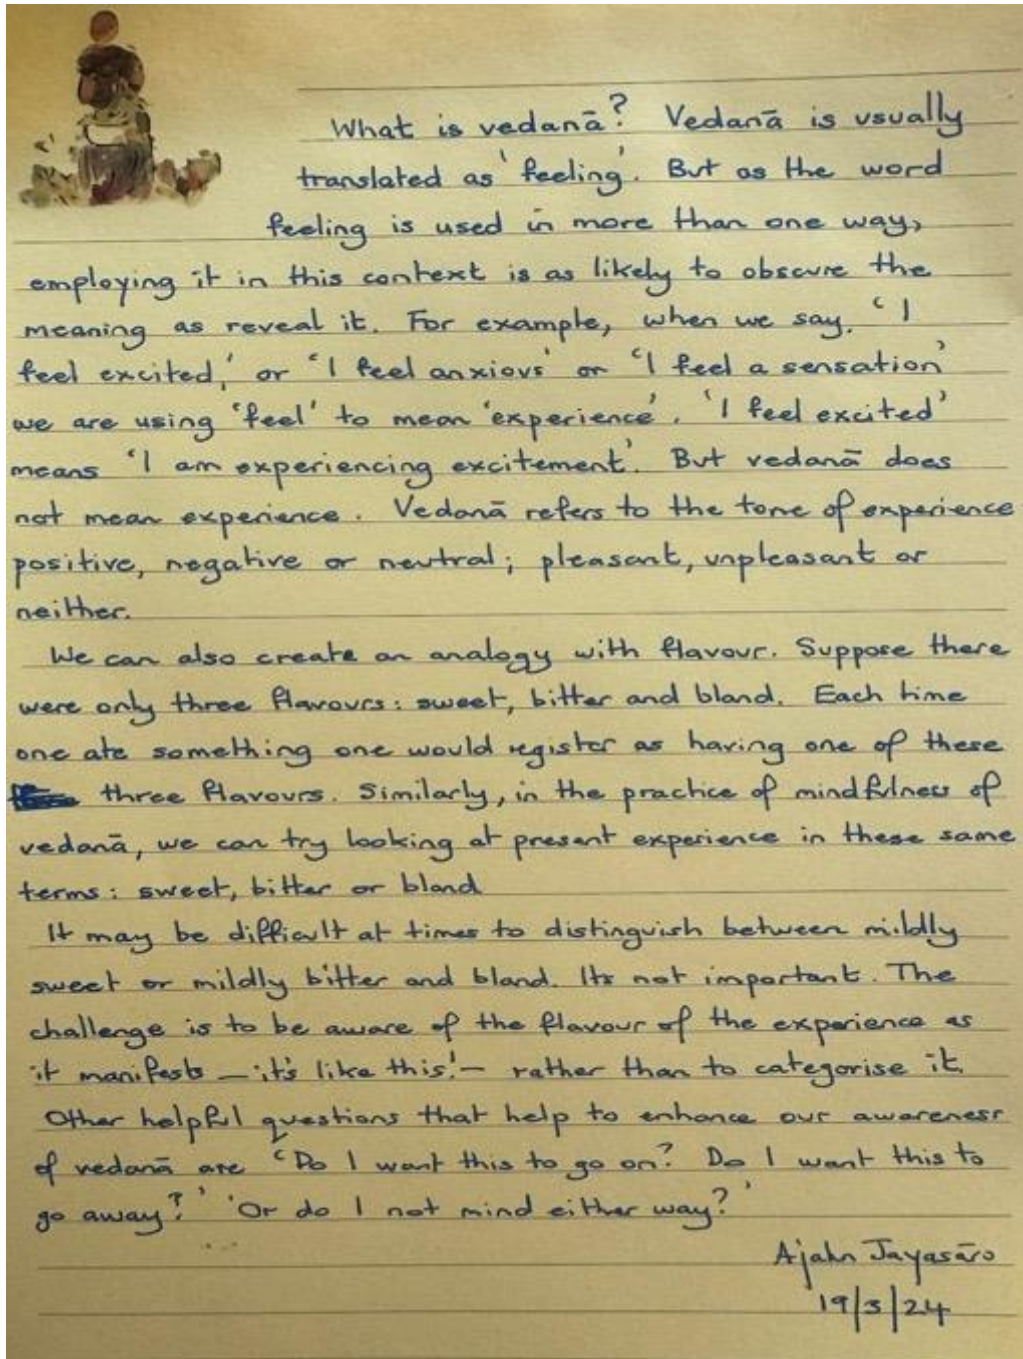 What is vedanā? Vedanā is usually
translated as 'feeling'. But as the word
feeling is used in more than one way,
employing it in this context is as likely to obscure the
meaning as reveal it. For example, when we say, 'I
feel excited,' or 'I feel anxious' or 'I feel a sensation'
we are using 'feel' to mean 'experience'. 'I feel excited'
means 'I am experiencing excitement'. But vedanā does
not mean experience. Vedanā refers to the tone of experience
positive, negative or neutral; pleasant, unpleasant or
neither.
We can also create an analogy with flavour. Suppose there
were only three flavours: sweet, bitter and bland. Each time
one ate something one would register as having one of these
three flavours. Similarly, in the practice of mindfulness of
vedanā, we can try looking at present experience in these same
terms: sweet, bitter or bland
It may be difficult at times to distinguish between mildly
sweet or mildly bitter and bland. Its not important. The
challenge is to be aware of the flavour of the experience as
it manifests – it's like this! – rather than to categorise it.
Other helpful questions that help to enhance our awareness
of vedanā are 'Do I want this to go on? Do I want this to
go away?' 'Or do I not mind either way?'
Ajahn Jayasāro
19/3/24